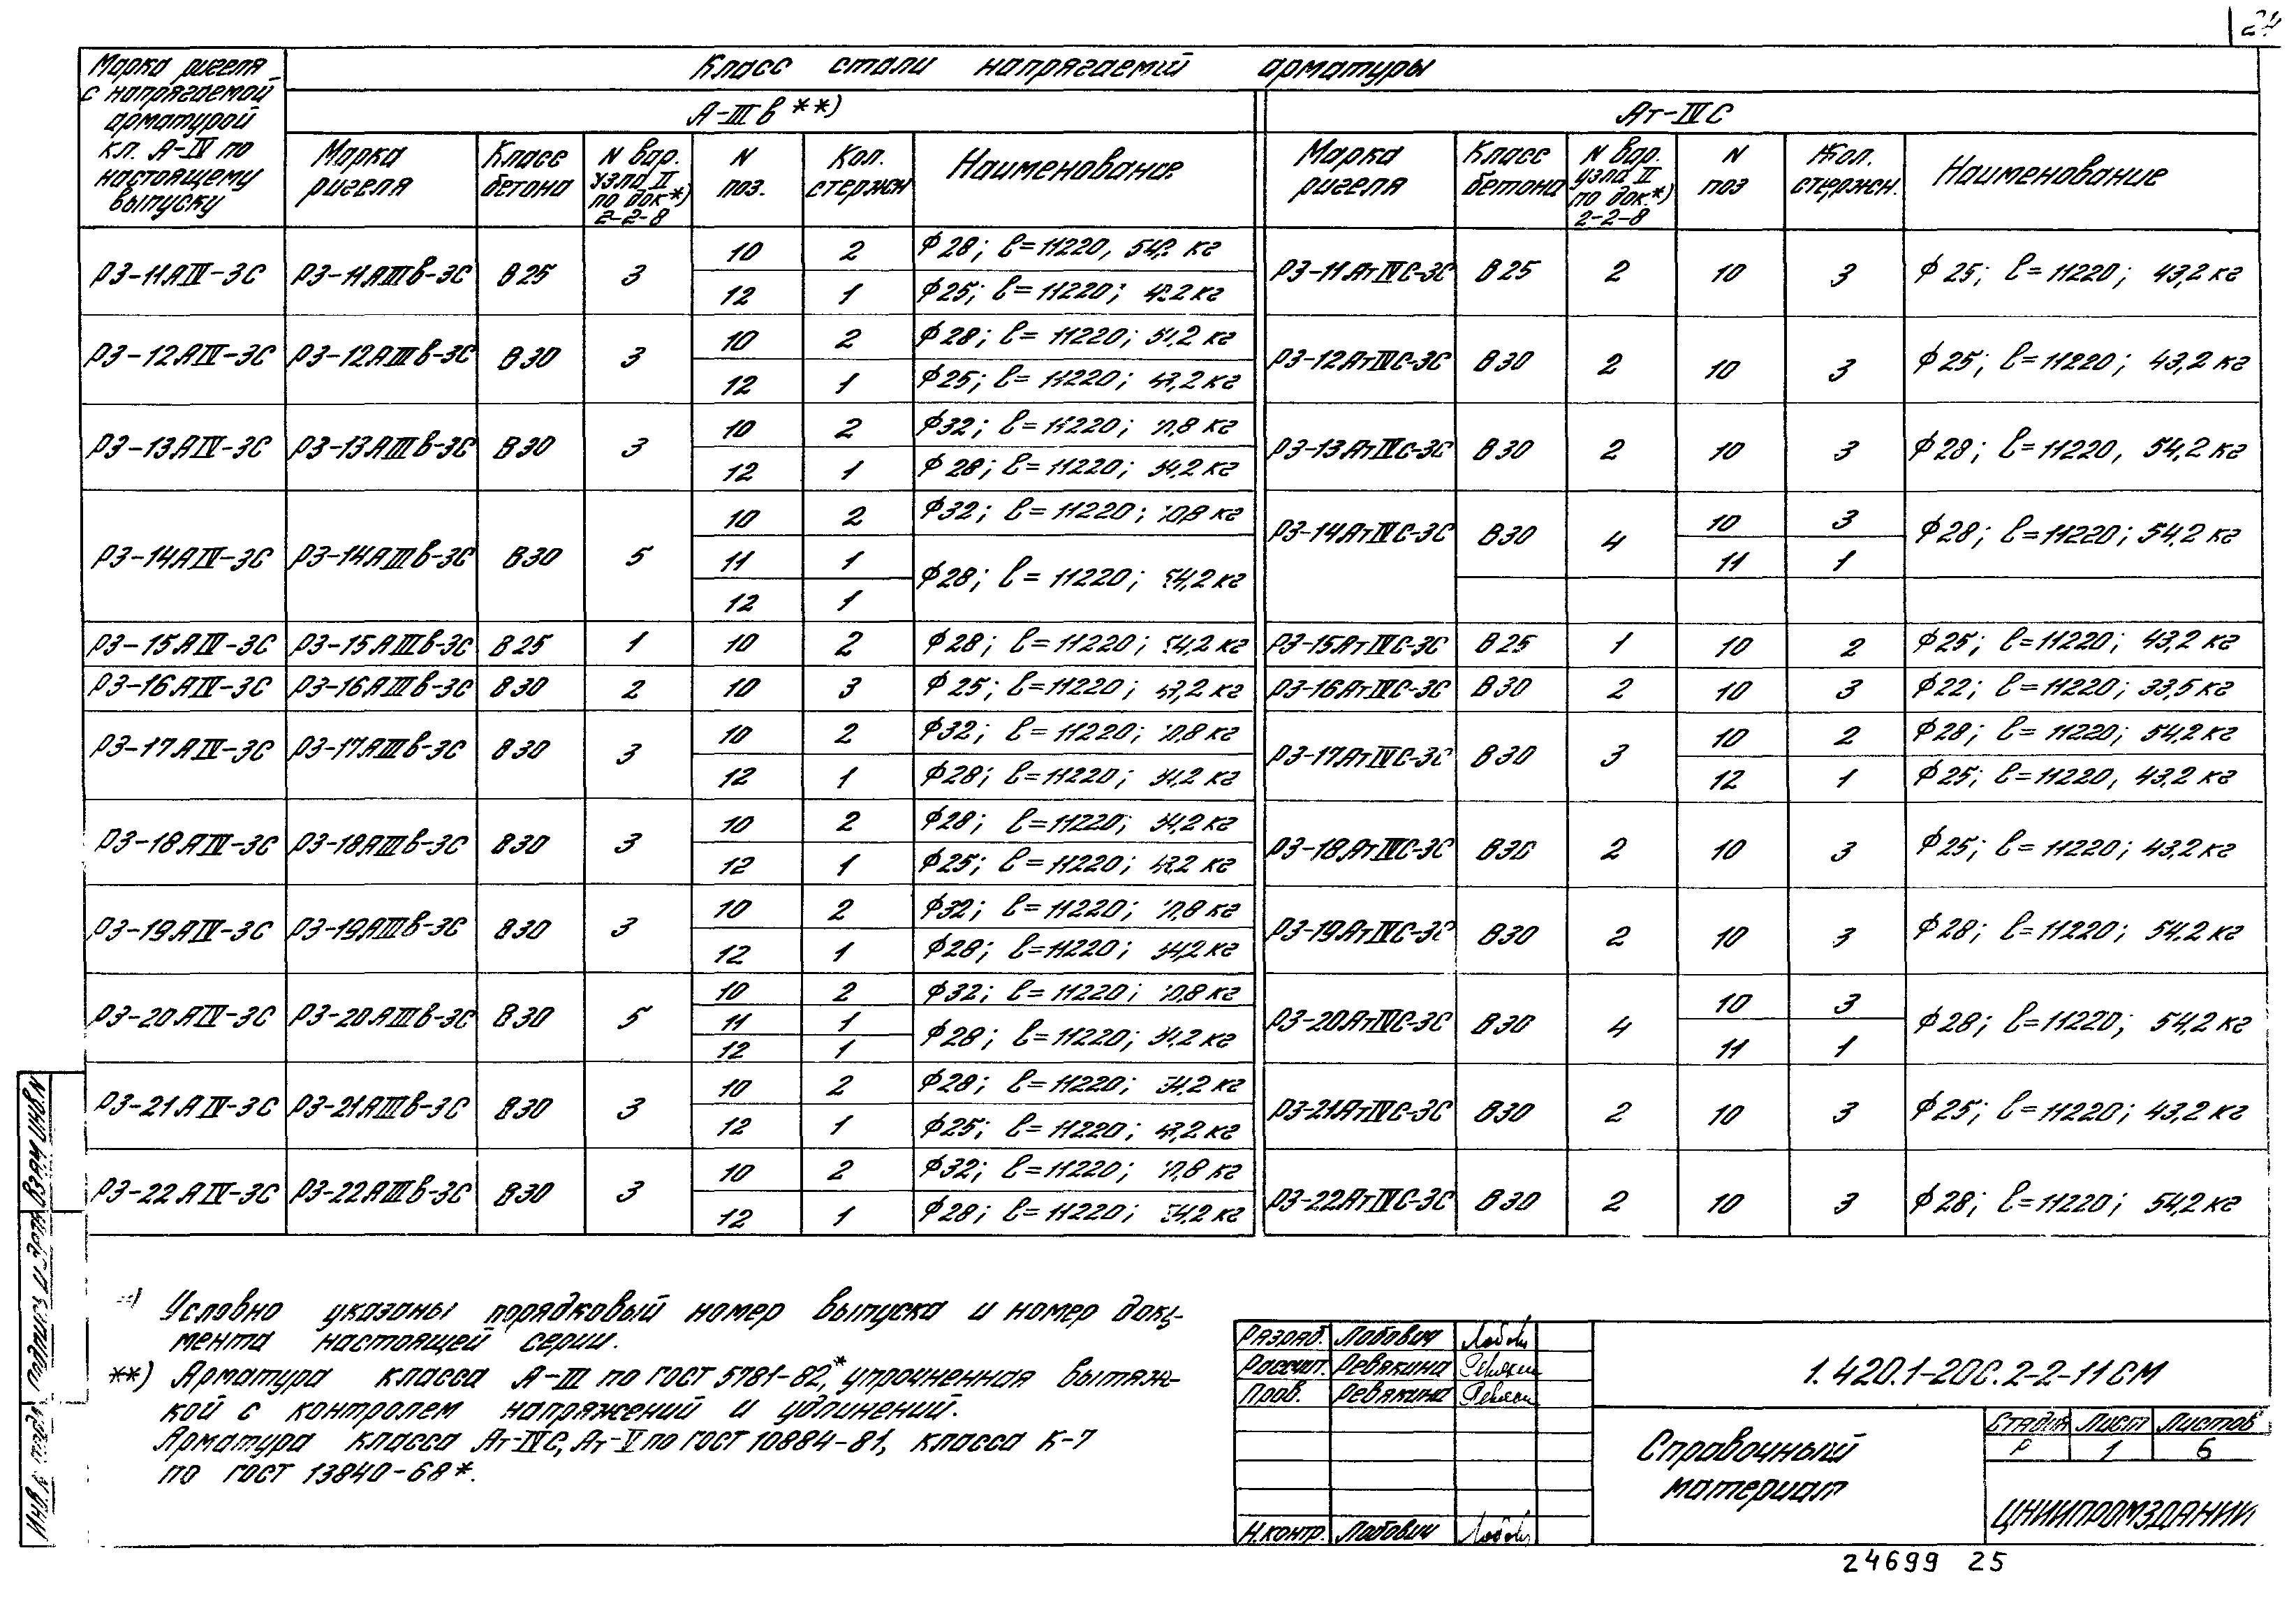 24
Марка ригеля с напрягаемой арматурой кл. А-IV по настоящему выпуску
Класс стали напрягаемй арматуры
А-IIIв **)
Ат-IVС
Марка ригеля | Класс бетона | N вар. узла II по док*) 2-2-8 | N поз. | Кол. стержн | Наименование | Марка ригеля | Класс бетона | N вар. узла II по док.*) 2-2-8 | N поз | Кол. стержн. | Наименование
Р3-11АIV-3С | Р3-11АIIIв-3С | В25 | 3 | 10 | 2 | ϕ28; ℓ=11220, 54,2 кг | Р3-11АтIVС-3С | В25 | 2 | 10 | 3 | ϕ25; ℓ=11220; 43,2 кг
12 | 1 | ϕ25; ℓ=11220; 43,2 кг
Р3-12АIV-3С | Р3-12АIIIв-3С | В30 | 3 | 10 | 2 | ϕ28; ℓ=11220; 54,2 кг | Р3-12АтIVС-3С | В30 | 2 | 10 | 3 | ϕ25; ℓ=11220; 43,2 кг
12 | 1 | ϕ25; ℓ=11220; 43,2 кг
Р3-13АIV-3С | Р3-13АIIIв-3С | В30 | 3 | 10 | 2 | ϕ32; ℓ=11220; 70,8 кг | Р3-13АтIVС-3С | В30 | 2 | 10 | 3 | ϕ28; ℓ=11220, 54,2 кг
12 | 1 | ϕ28; ℓ=11220; 54,2 кг
Р3-14АIV-3С | Р3-14АIIIв-3С | В30 | 5 | 10 | 2 | ϕ32; ℓ=11220; 70,8 кг | Р3-14АтIVС-3С | В30 | 4 | 10 | 3 | ϕ28; ℓ=11220; 54,2 кг
11 | 1 | ϕ28; ℓ=11220; 54,2 кг | 11 | 1
12 | 1
Р3-15АIV-3С | Р3-15АIIIв-3С | В25 | 1 | 10 | 2 | ϕ28; ℓ=11220; 54,2 кг | Р3-15АтIVС-3С | В25 | 1 | 10 | 2 | ϕ25; ℓ=11220; 43,2 кг
Р3-16АIV-3С | Р3-16АIIIв-3С | В30 | 2 | 10 | 3 | ϕ25; ℓ=11220; 43,2 кг | Р3-16АтIVС-3С | В30 | 2 | 10 | 3 | ϕ22; ℓ=11220; 33,5 кг
Р3-17АIV-3С | Р3-17АIIIв-3С | В30 | 3 | 10 | 2 | ϕ32; ℓ=11220; 70,8 кг | Р3-17АтIVС-3С | В30 | 3 | 10 | 2 | ϕ28; ℓ=11220; 54,2 кг
12 | 1 | ϕ28; ℓ=11220; 54,2 кг | 12 | 1 | ϕ25; ℓ=11220, 43,2 кг
Р3-18АIV-3С | Р3-18АIIIв-3С | В30 | 3 | 10 | 2 | ϕ28; ℓ=11220; 54,2 кг | Р3-18АтIVС-3С | В30 | 2 | 10 | 3 | ϕ25; ℓ=11220; 43,2 кг
12 | 1 | ϕ25; ℓ=11220; 43,2 кг
Р3-19АIV-3С | Р3-19АIIIв-3С | В30 | 3 | 10 | 2 | ϕ32; ℓ=11220; 70,8 кг | Р3-19АтIVС-3С | В30 | 2 | 10 | 3 | ϕ28; ℓ=11220; 54,2 кг
12 | 1 | ϕ28; ℓ=11220; 54,2 кг
Р3-20АIV-3С | Р3-20АIIIв-3С | В30 | 5 | 10 | 2 | ϕ32; ℓ=11220; 70,8 кг | Р3-20АтIVС-3С | В30 | 4 | 10 | 3 | ϕ28; ℓ=11220; 54,2 кг
11 | 1 | ϕ28; ℓ=11220; 54,2 кг | 11 | 1
12 | 1
Р3-21АIV-3С | Р3-21АIIIв-3С | В30 | 3 | 10 | 2 | ϕ28; ℓ=11220; 54,2 кг | Р3-21АтIVС-3С | В30 | 2 | 10 | 3 | ϕ25; ℓ=11220; 43,2 кг
12 | 1 | ϕ25; ℓ=11220; 43,2 кг
Р3-22АIV-3С | Р3-22АIIIв-3С | В30 | 3 | 10 | 2 | ϕ32; ℓ=11220; 70,8 кг | Р3-22АтIVС-3С | В30 | 2 | 10 | 3 | ϕ28; ℓ=11220; 54,2 кг
12 | 1 | ϕ28; ℓ=11220; 54,2 кг
*) Условно указаны порядковый номер выпуска и номер доку-
мента настоящей серии.
**) Арматура класса А-III по ГОСТ 5781-82*, упрочненная вытяж-
кой с контролем напряжений и удлинений.
Арматура класса Ат-IVС, Ат-V по ГОСТ 10884-81, класса К-7
по ГОСТ 13840-68*.
Разраб. Лобович
Рассчит. Ревякина
Пров. Ревякина
Н.контр. Лобович
1.420.1-20с.2-2-11СМ
Справочный
материал
Стадия Лист Листов
Р 1 6
ЦНИИПРОМЗДАНИЙ
24699 25
Инв.N подл. Подпись и дата Взам инв.N